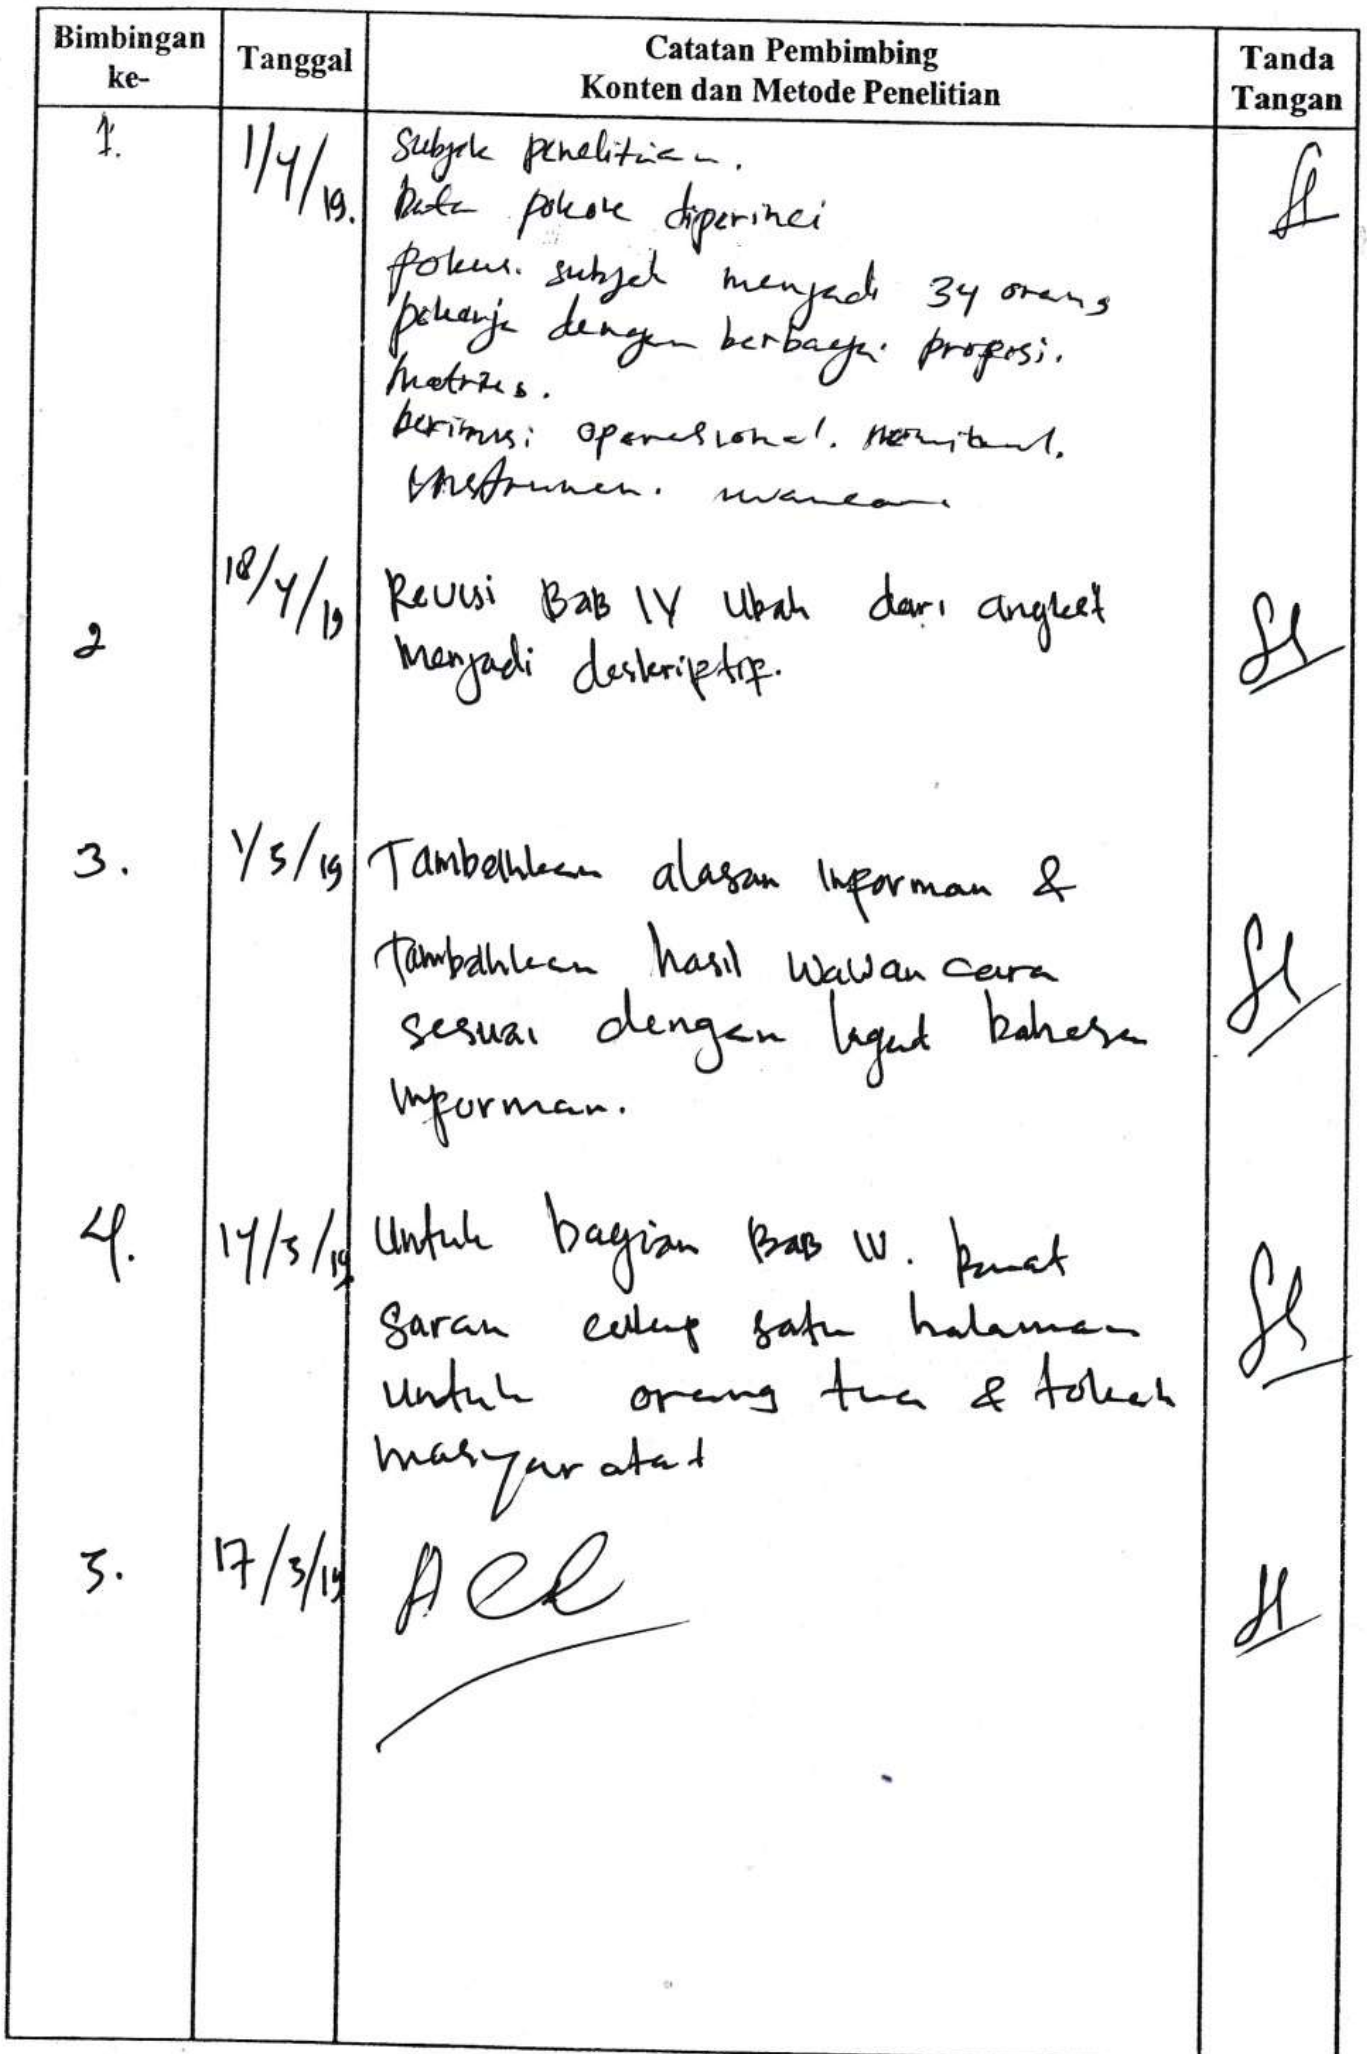 Bimbingan ke-
Tanggal
Catatan Pembimbing
Konten dan Metode Penelitian
Tanda Tangan
1. 1/4/19. Subjek penelitian.
Data pokok diperinci
fokus. subjek menjadi 34 orang
pekerja dengan berbagai propesi.
matriks.
operasional.
instrumen.
2 18/4/19 Revisi BAB IV Ubah dari angket
menjadi deskriptip.
3. 1/5/19 Tambahkan alasan Informan &
tambahkan hasil wawancara
sesuai dengan bahasa
Informan.
4. 14/5/19 Untuk bagian BAB buat
saran cukup satu halaman
untuk orang tua & tokoh
masyaratat
5. 17/5/19 Acc